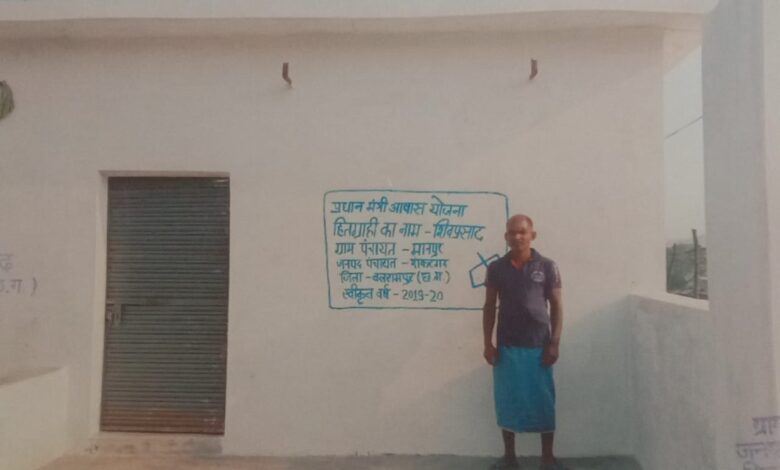 प्रधान मंत्री आवास योजना
हितग्राही का नाम - शिवप्रसाद
ग्राम पंचायत - मानपुर
जनपद पंचायत - शंकरगढ़
जिला - बलरामपुर (छ.ग.)
स्वीकृत वर्ष - 2019-20
ग्रा
जन